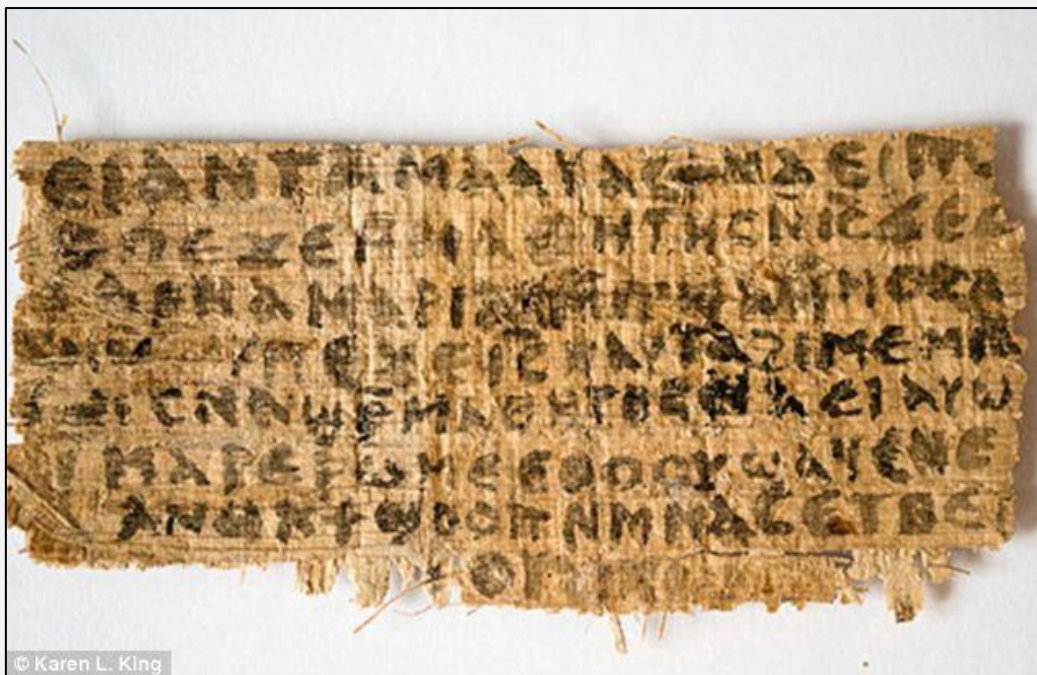 ⲉⲓ ⲁⲛ ⲧⲁⲙⲁⲁⲩ ⲁⲥϯ ⲛⲁⲉⲓ
ⲡⲉϫⲉ ⲙⲙⲁⲑⲏⲧⲏⲥ ⲛⲓ̅ⲥ̅ ϫⲉ ⲥ
ⲁⲣⲛⲁ ⲙⲁⲣⲓⲁⲙ ⲙⲡϣⲁ ⲙⲙⲟⲥ ⲁ
ⲡⲉϫⲉ ⲓ̅ⲥ̅ ⲛⲁⲩ ⲧⲁϩⲓⲙⲉ ⲙⲛ
ⲥⲛⲁϣⲣⲙⲁⲑⲏⲧⲏⲥ ⲛⲁⲉⲓ ⲁⲩⲱ
ⲓ ⲙⲁⲣⲉⲣⲱⲙⲉ ⲉⲑⲟⲟⲩ ϣⲁϥⲉ ⲛⲉ
ⲁⲛⲟⲕ ϯϣⲟⲟⲡ ⲛⲙⲙⲁⲥ ⲉⲧⲃⲉ
© Karen L. King